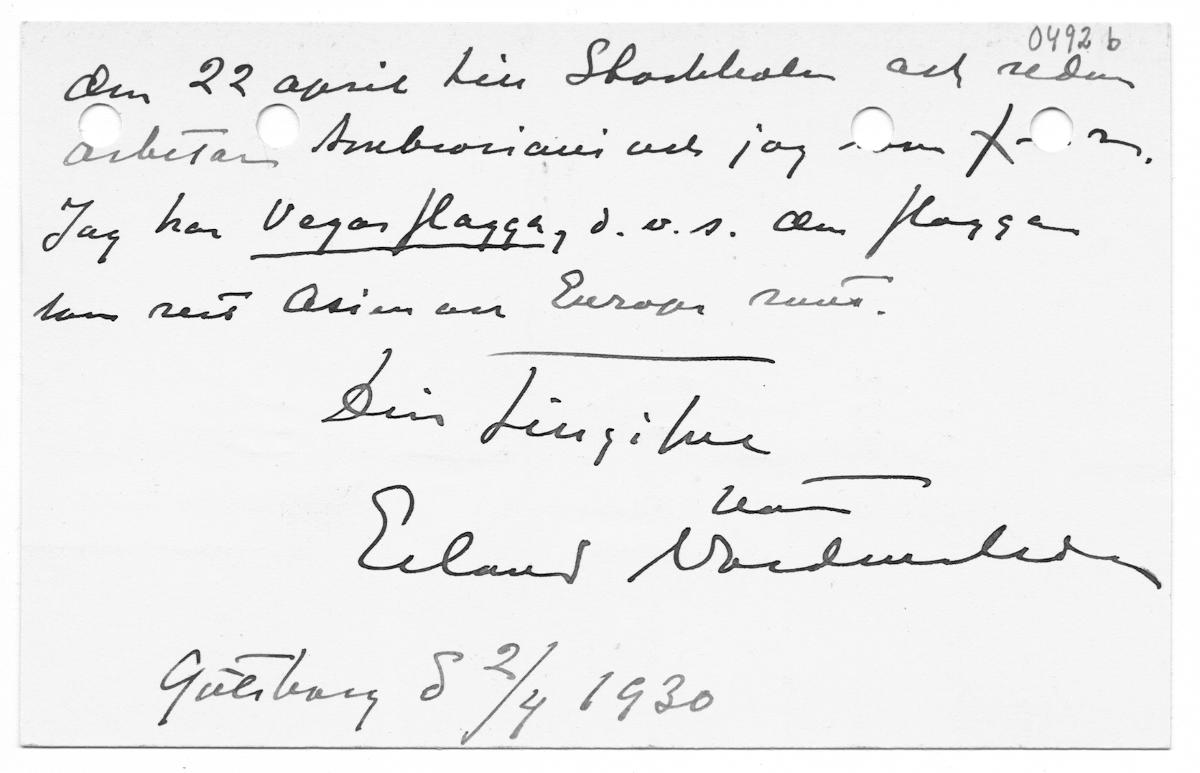 0492 b
den 22 april till Stockholm och redan
arbetar Ambrosiani och jag som
Jag har Vegas flagga, d. v. s. den flaggan
som rest Asien och Europa runt.
Din tillgifne
vän
Erland Nordenskiöld
Göteborg d 2/4 1930